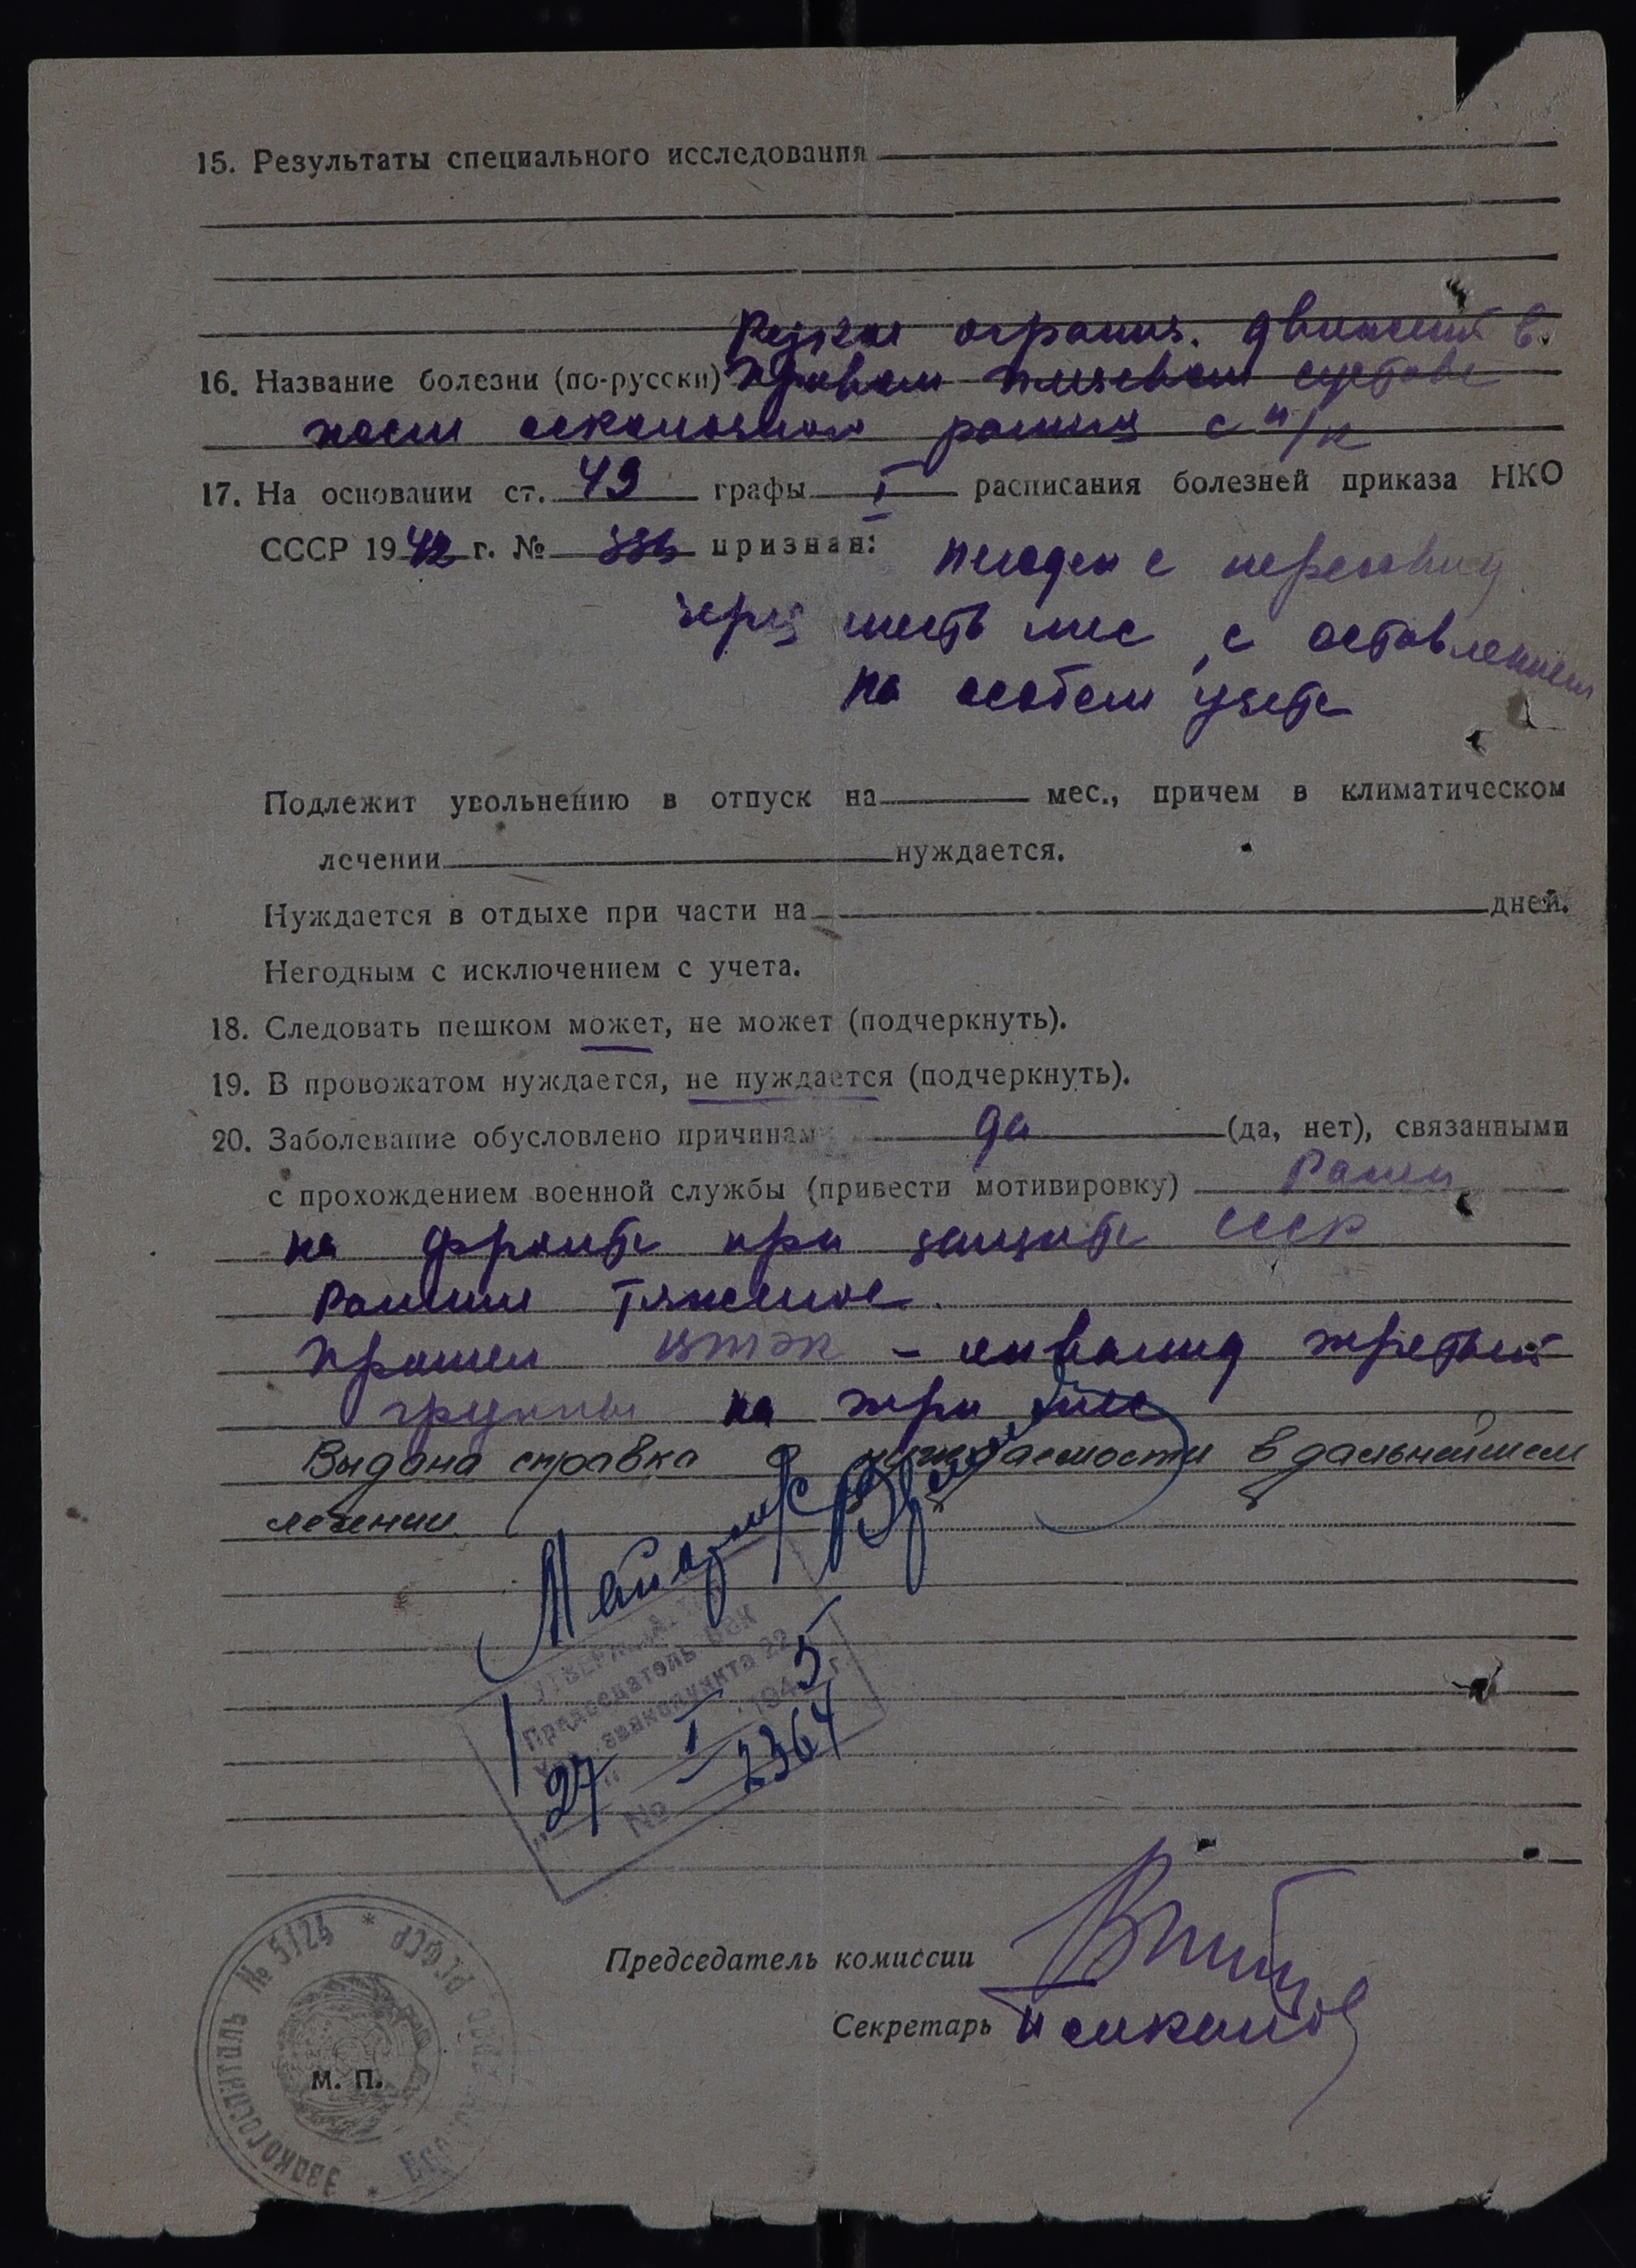 15. Результаты специального исследования
Резкое огранич. движений в
16. Название болезни (по-русски) правом плечевом суставе
после осколочного ранения с п/к
17. На основании ст. 49 графы I расписания болезней приказа НКО
СССР 1942 г. № 336 признан:
негоден с переосвид
через шесть мес, с оставлением
на особом учете
Подлежит увольнению в отпуск на мес., причем в климатическом
лечении нуждается.
Нуждается в отдыхе при части на дней.
Негодным с исключением с учета.
18. Следовать пешком может, не может (подчеркнуть).
19. В провожатом нуждается, не нуждается (подчеркнуть).
20. Заболевание обусловлено причинам да (да, нет), связанными
с прохождением военной службы (привести мотивировку) Ранен
на фронте при защите СССР
Ранение тяжелое.
Прошел ВТЭК – инвалид третьей
группы на три мес
Выдана справка о нуждаемости в дальнейшем
лечении
Председатель ВВК
эвакопункта 22
"27" I 1945 г.
№ 2364
Председатель комиссии
Секретарь
М. П.
ЭВАКОГОСПИТАЛЬ № 5124 * РСФСР